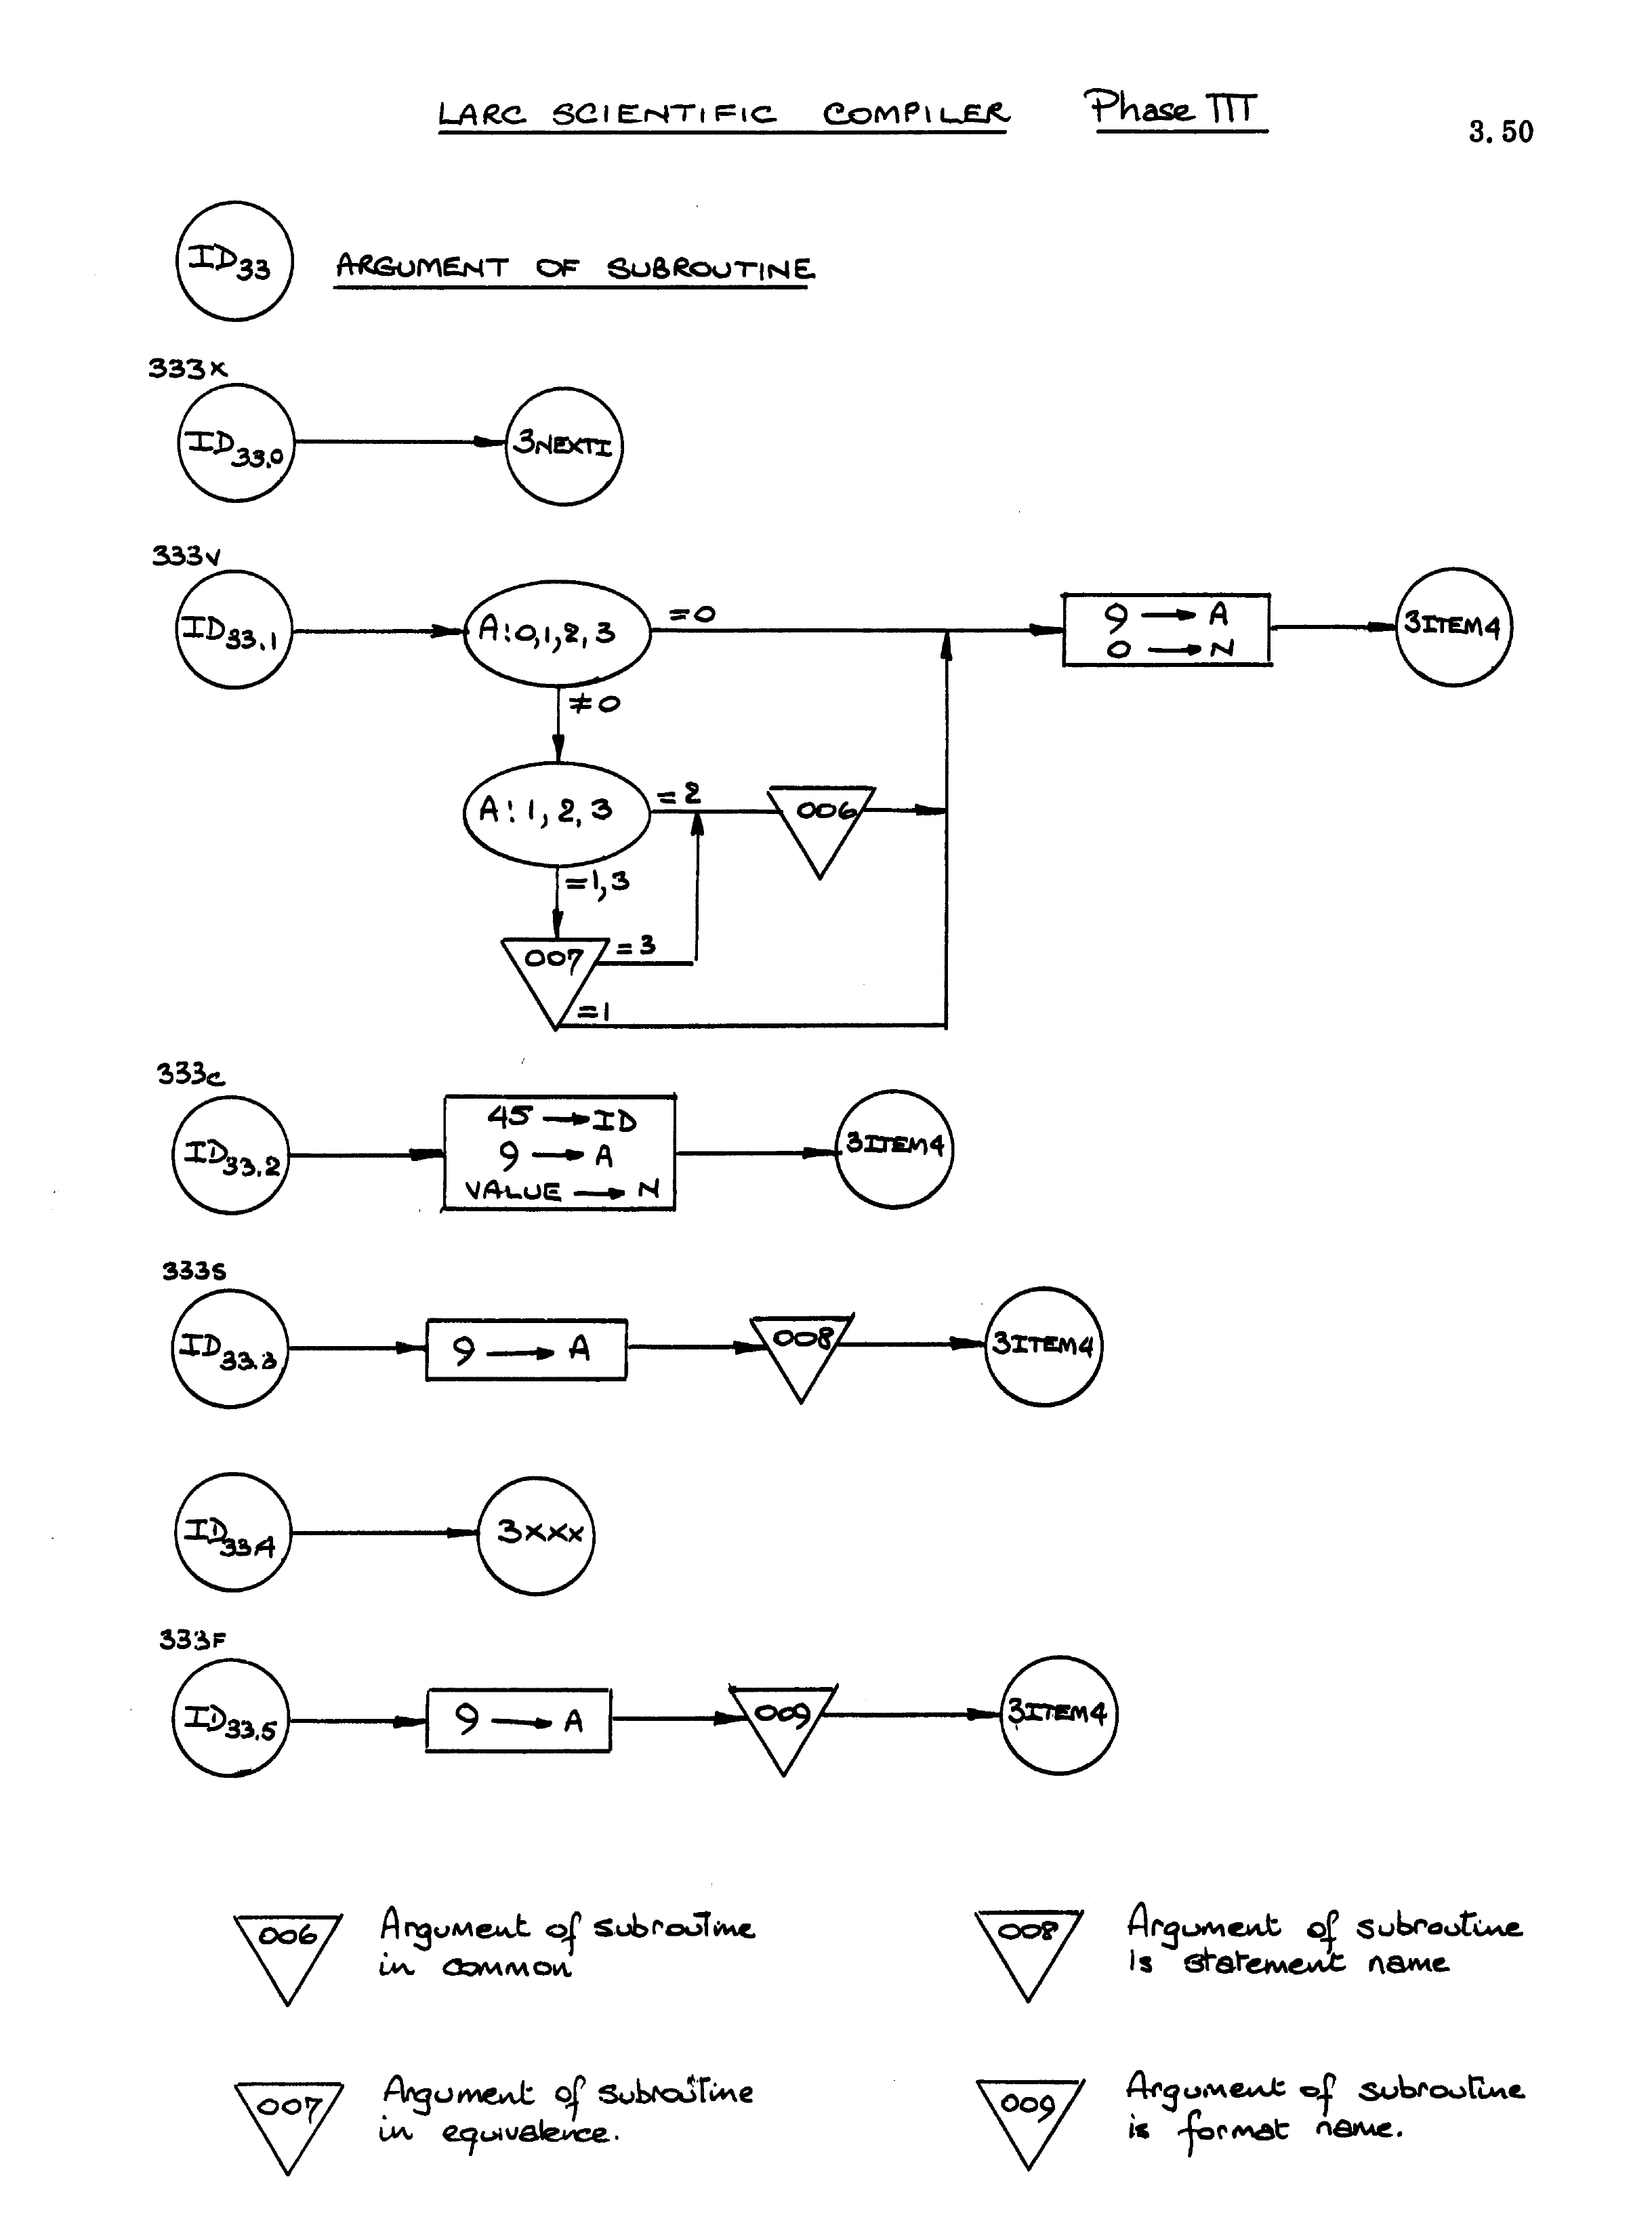 LARC SCIENTIFIC COMPILER Phase III
3.50
ID33 ARGUMENT OF SUBROUTINE
333x
ID33.0 3NEXTI
333v
ID33.1 A:0,1,2,3 =0 9 → A 3ITEM4
0 → N
≠0
A:1,2,3 =2 006
=1,3
007 =3
=1
333c
ID33.2 45 → ID 3ITEM4
9 → A
VALUE → N
333s
ID33.3 9 → A 008 3ITEM4
ID33.4 3xxx
333F
ID33.5 9 → A 009 3ITEM4
006 Argument of subroutine
in common
008 Argument of subroutine
is statement name
007 Argument of subroutine
in equivalence.
009 Argument of subroutine
is format name.